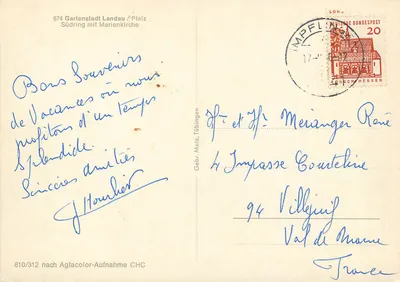 674 Gartenstadt Landau / Pfalz
Südring mit Marienkirche
Bons Souvenirs
de Vacances où nous
profitons d'un temps
Splendide.
Sincères amitiés
J Hourlier
810/312 nach Agfacolor-Aufnahme CHC
Gebr. Metz, Tübingen
IMPFLINGEN
DEUTSCHE BUNDESPOST
20
HESSEN
Mr et Mme Meranger René
4 Impasse Courteline
94 Villejuif
Val de Marne
France